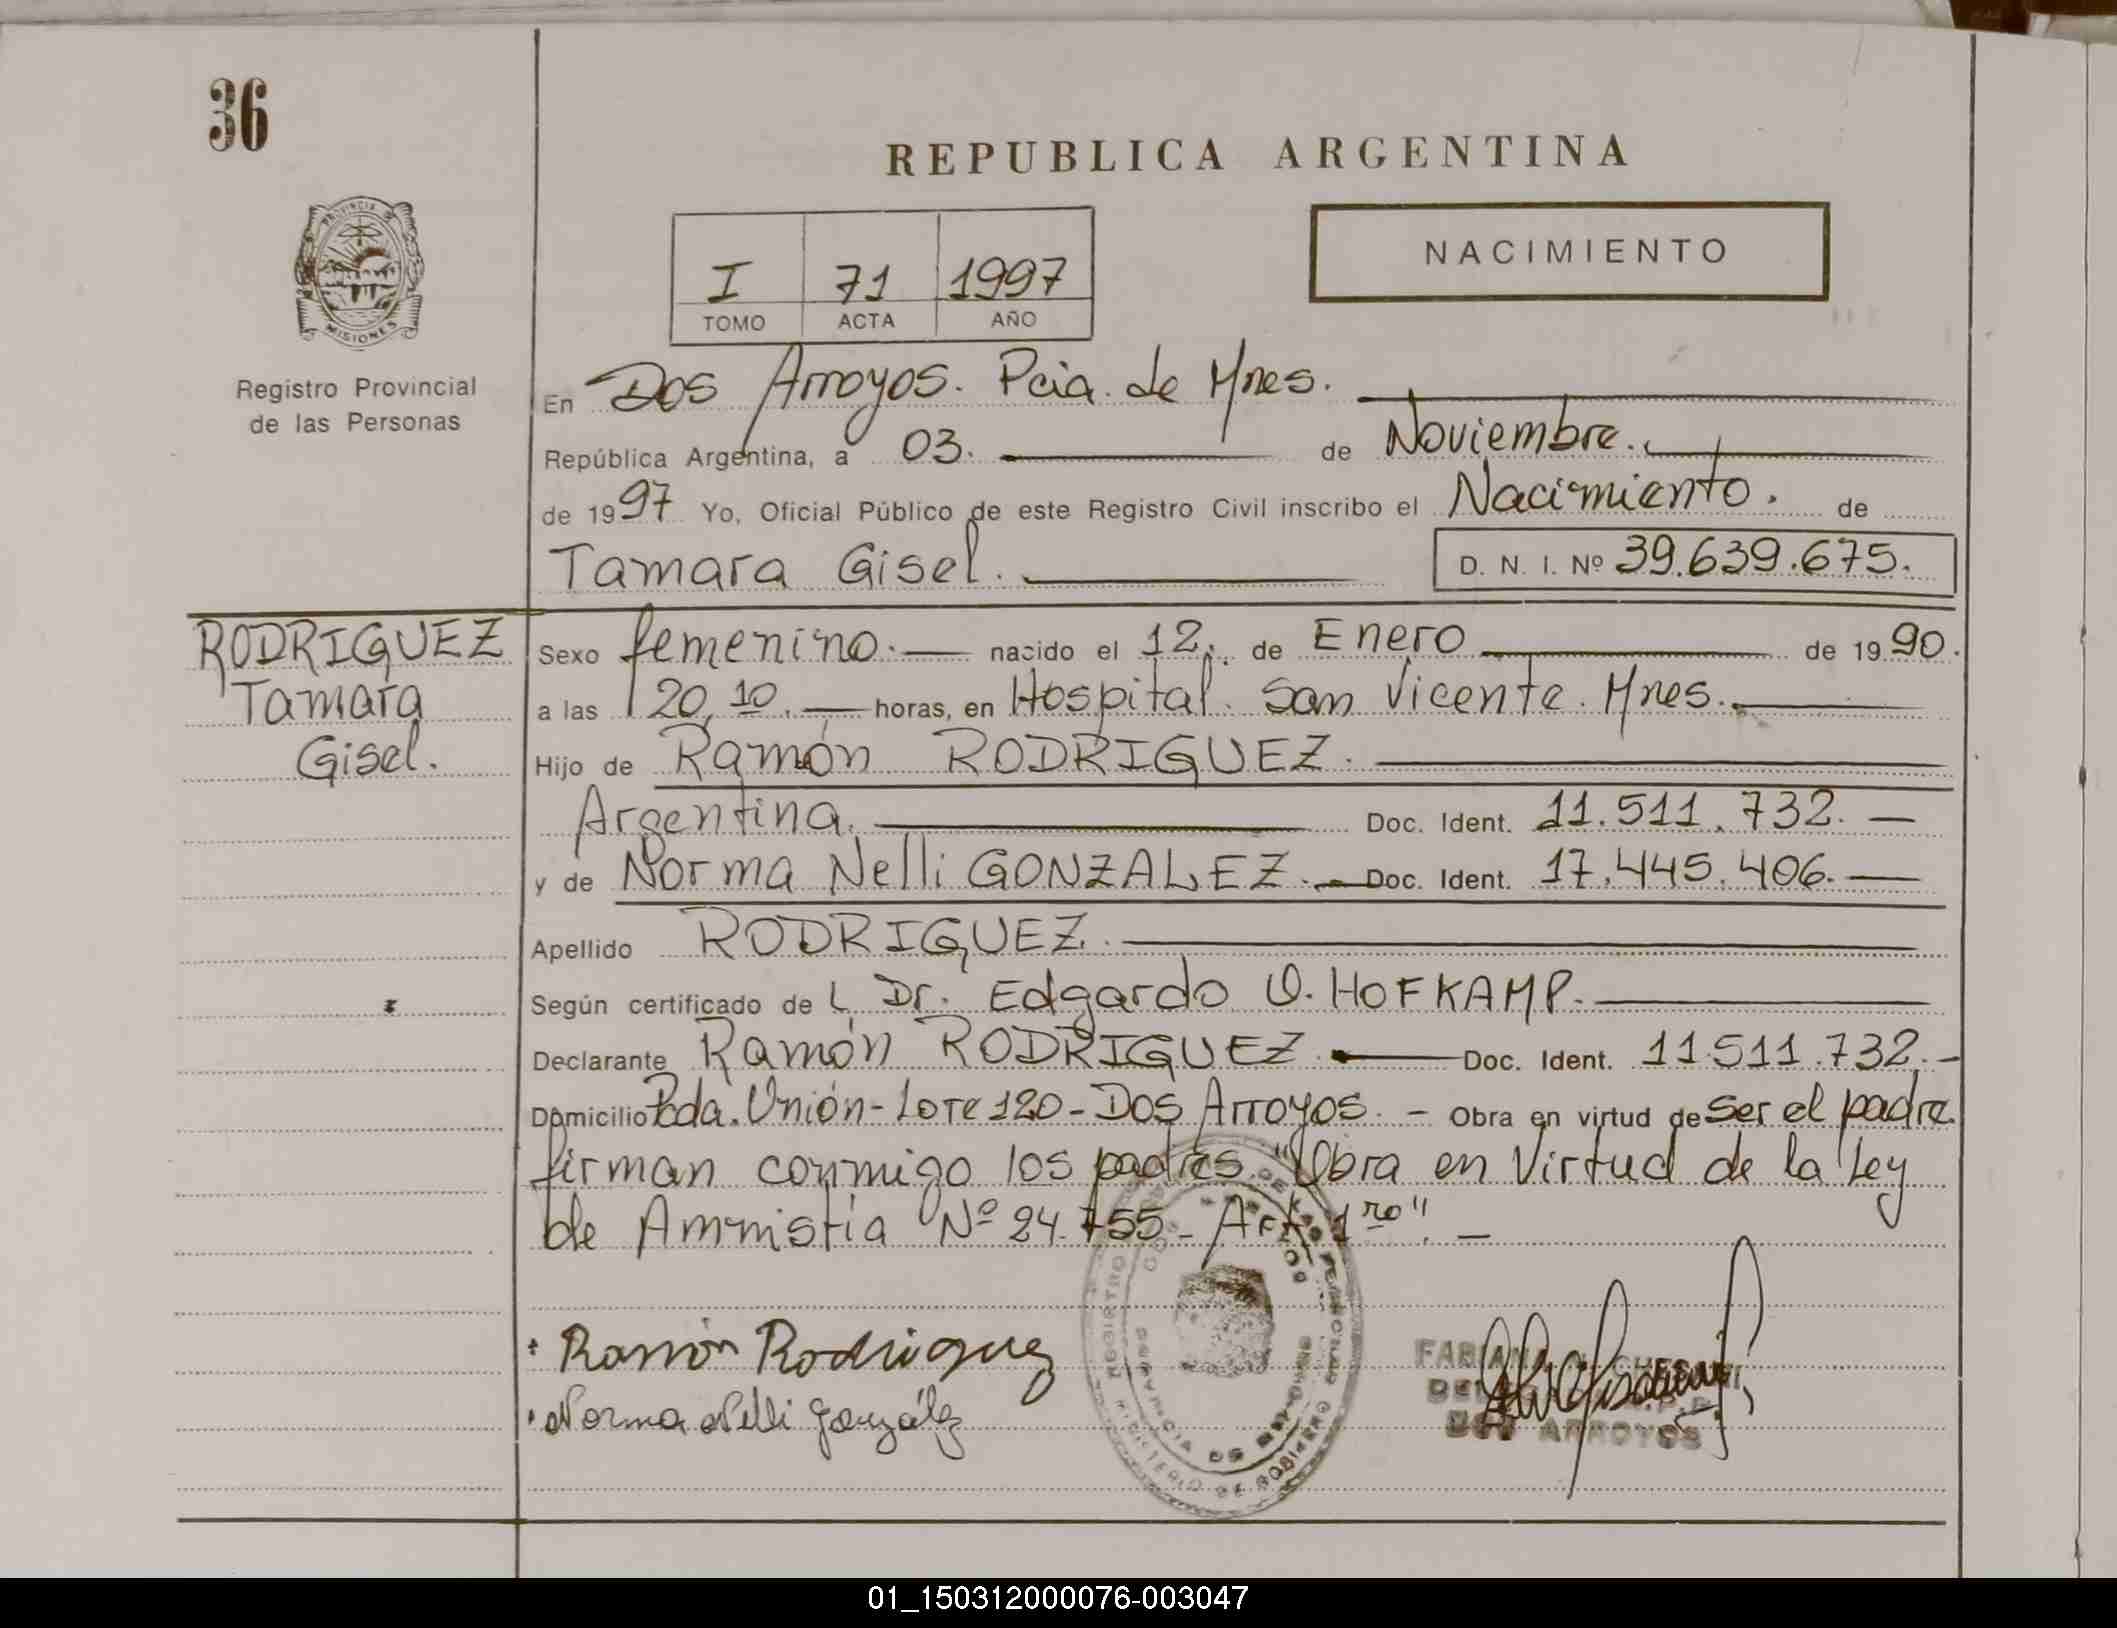 36
REPUBLICA ARGENTINA
PROVINCIA DE
MISIONES
Registro Provincial
de las Personas
I 71 1997
TOMO ACTA AÑO
NACIMIENTO
En Dos Arroyos. Pcia. de Mnes.
República Argentina, a 03. de Noviembre.
de 1997 Yo, Oficial Público de este Registro Civil inscribo el Nacimiento. de
Tamara Gisel. D. N. I. Nº 39.639.675.
RODRIGUEZ
Tamara
Gisel.
Sexo femenino. nacido el 12. de Enero de 1990.
a las 20,10. horas, en Hospital. San Vicente. Mnes.
Hijo de Ramón RODRIGUEZ.
Argentina. Doc. Ident. 11.511.732.
y de Norma Nelli GONZALEZ. Doc. Ident. 17.445.406.
Apellido RODRIGUEZ.
Según certificado de Dr. Edgardo O. HOFKAMP.
Declarante Ramón RODRIGUEZ. Doc. Ident. 11.511.732.-
Domicilio Pcda. Unión-Lote 120-Dos Arroyos. - Obra en virtud de ser el padre
firman conmigo los padres. "Obra en Virtud de la Ley
de Amnistía Nº 24.755- Art. 1ro". -
Ramón Rodriguez
Norma Nelli González
DOS ARROYOS
01_150312000076-003047